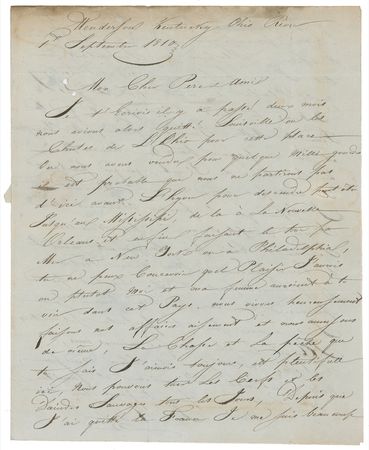 Henderson Kentucky Ohio River
1er Septembre 1810
Mon Cher Pere Amis
Je t'Ecrivois il y a passé deux mois
nous avions alors quitté Louisville ou les
Chutes de L'Ohio pour cette place
ou nous avons vendu pour quelque mille gourdes
il est probable que nous ne partirons pas
d'ici avant L'hyver pour descendre peut etre
Jusqu'au Missisipi, de la à la Nouvelle
Orleans, et enfin faisant le tour par
Mer a New York ou a Philadelphia,
tu ne peux Concevoir quel Plaisir J'aurois
ou plutot moi et ma femme aurions à te
voir dans cet Pays. nous vivons heureusement
faisons nos affaires aisement et nous amusons
de même, La Chasse et la pêche que
tu sais J'aimois toujours, est plentifull
ici. Nous pouvons tuer Les Cerfs et les
Daindes Sauvages tout les Jours, Depuis que
J'ai quitté la France Je me suis beaucoup